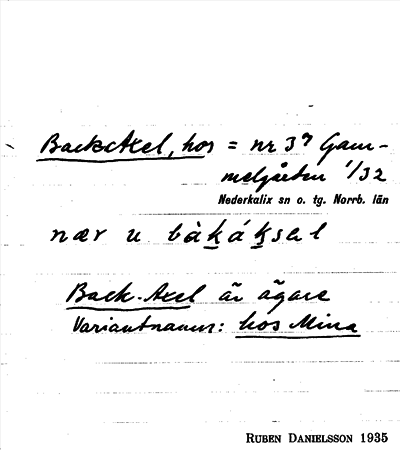 BackAxel, hos = nr 3⁹ Gam-
melgården 1/32
Nederkalix sn o. tg. Norrb. län
nær u bàkáksəl
Back-Axel är ägare
Variantnamn: hos Mina
RUBEN DANIELSSON 1935